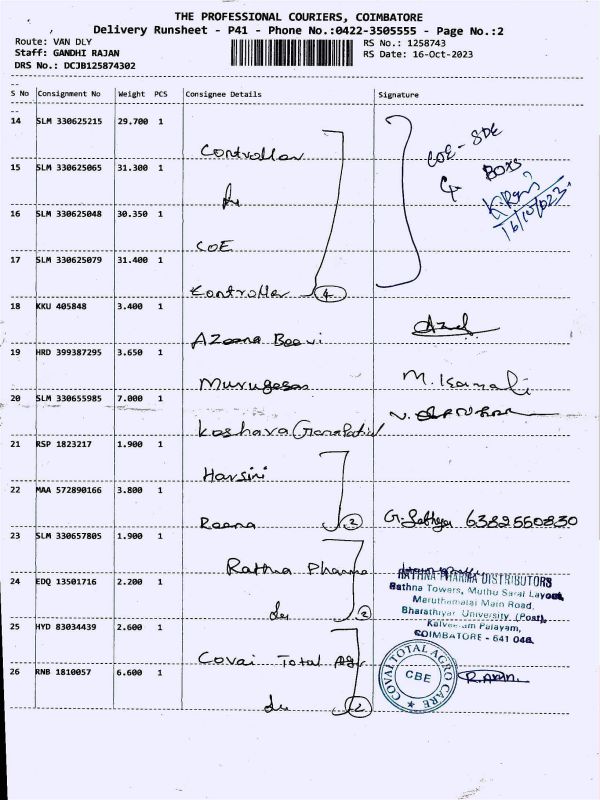 THE PROFESSIONAL COURIERS, COIMBATORE
Delivery Runsheet - P41 - Phone No.:0422-3505555 - Page No.:2
Route: VAN DLY
RS No.: 1258743
Staff: GANDHI RAJAN
RS Date: 16-Oct-2023
DRS No.: DCJB125874302
S No Consignment No Weight PCS Consignee Details Signature
14 SLM 330625215 29.700 1
Controller
COE - SDE
4 BOXS
16/10/2023
15 SLM 330625065 31.300 1
16 SLM 330625048 30.350 1
COE
17 SLM 330625079 31.400 1
Controller 4
18 KKU 405848 3.400 1
Azeena Beevi
19 HRD 399387295 3.650 1
Murugesan M. Kamali
20 SLM 330655985 7.000 1
Keshava
21 RSP 1823217 1.900 1
Harsini
22 MAA 572890166 3.800 1
Reena 2 G. Sathya 6382560830
23 SLM 330657805 1.900 1
Rathna Pharma
RATHNA PHARMA DISTRIBUTORS
Rathna Towers, Muthu Sarai Layout,
Maruthamalai Main Road,
Bharathiyar University, (Post),
Kalveeram Palayam,
COIMBATORE - 641 046.
24 EDQ 13501716 2.200 1
do 2
25 HYD 83034439 2.600 1
Covai Total Agr
COVAI TOTAL AGRO CARE
CBE
26 RNB 1810057 6.600 1
do 2